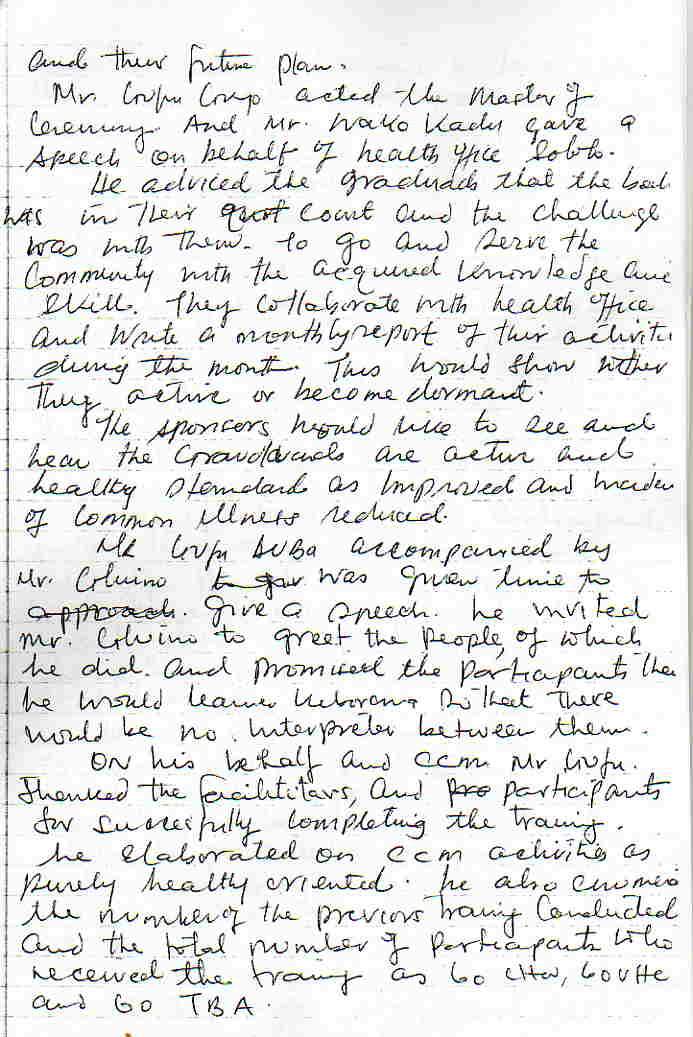 and their future plan.
Mr. Guyu acted the Master of
Ceremony. And Mr. Wako Kadu gave a
speech on behalf of health office
He adviced the graduads that the ball
was in their court and the challenge
was with them. to go and serve the
Community with the acquired knowledge and
skill. They collaborate with health office
and Write a monthly report of their activitie
during the month. This would show wither
they active or become dormant.
The sponsors would like to see and
hear the are active and
healthy standards as improved and burden
of common illness reduced.
Mr Guyu DUBA accompanied by
Mr. was given time to
approach. give a speech. he invited
mr. to greet the people, of which
he did. and promised the participants that
he would So that there
would be no. interpreter between them.
On his behalf and CCM Mr Guyu.
Thanked the facilititars, and participants
for succesfully completing the traing.
he elaborated on CCM activities as
purely healthy oriented. he also
the number of the previors traing conducted
and the total number of participants who
received the traing as 60 CHW, 60 VHC
and 60 TBA.